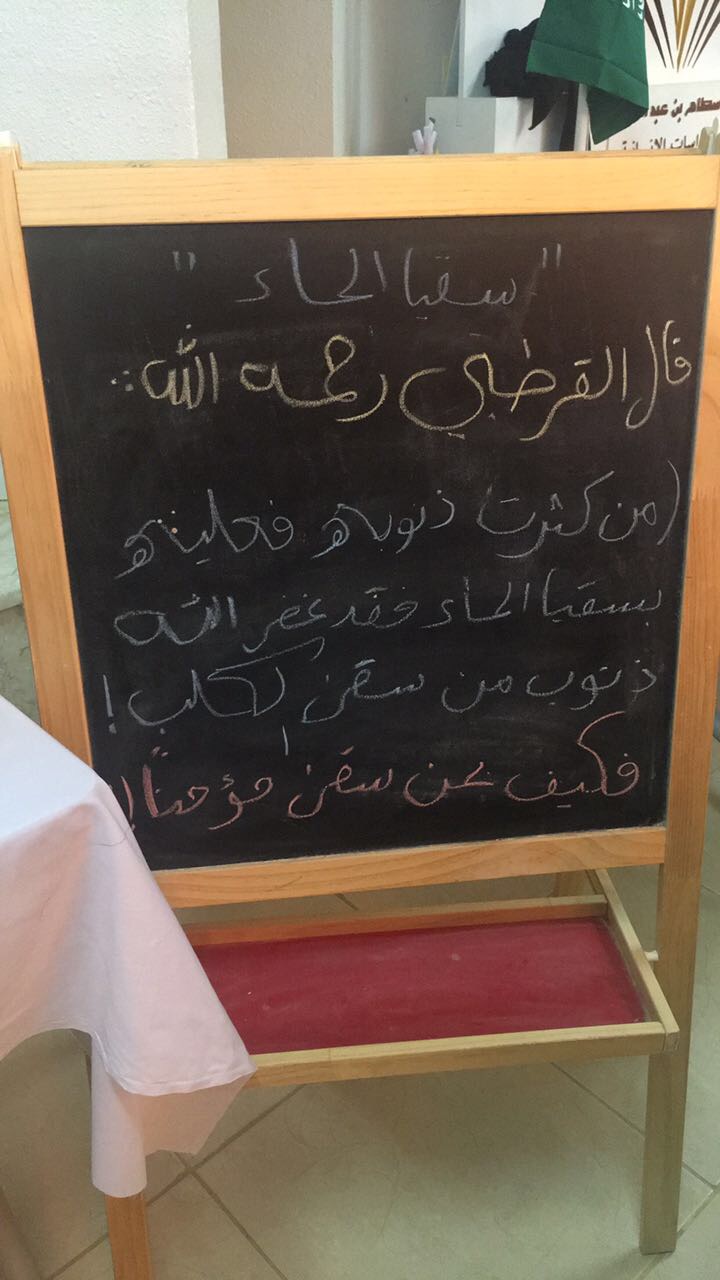 سطام بن عبد
" سقيا الماء "
قال القرطبي رحمه الله :
(من كثرت ذنوبه فعليه
بسقيا الماء فقد غفر الله
ذنوب من سقى الكلب !
فكيف بمن سقى مؤمناً !)